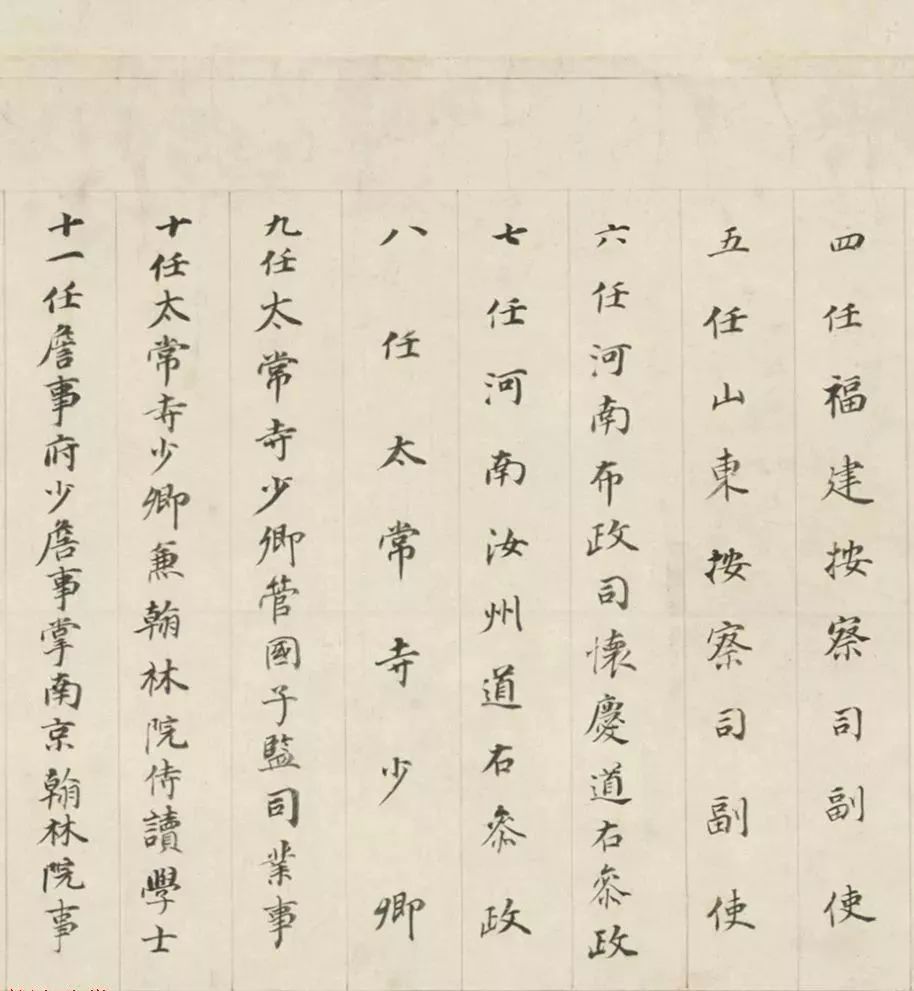 四任福建按察司副使
五任山東按察司副使
六任河南布政司懷慶道右叅政
七任河南汝州道右叅政
八任太常寺少卿
九任太常寺少卿管國子監司業事
十任太常寺少卿兼翰林院侍讀學士
十一任詹事府少詹事掌南京翰林院事